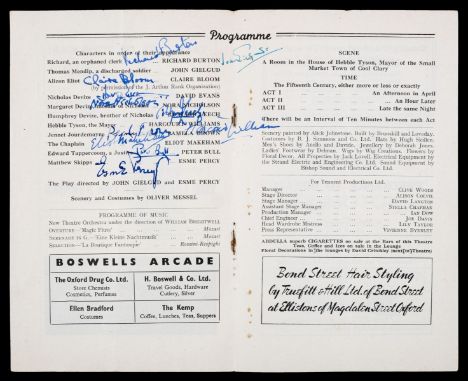 Programme
Characters in order of their appearance
Richard, an orphaned clerk RICHARD BURTON
Thomas Mendip, a discharged soldier JOHN GIELGUD
Alizon Eliot CLAIRE BLOOM
(by permission of the J. Arthur Rank Organisation)
Nicholas Devize DAVID EVANS
Margaret Devize NORA NICHOLSON
Humphrey Devize, brother of Nicholas
Hebble Tyson, the Mayor HARCOURT WILLIAMS
Jennet Jourdemayne
The Chaplain ELIOT MAKEHAM
Edward Tappercoom, a PETER BULL
Matthew Skipps ESME PERCY
The Play directed by JOHN GIELGUD and ESME PERCY
Scenery and Costumes by OLIVER MESSEL
PROGRAMME OF MUSIC
New Theatre Orchestra under the direction of WILLIAM BRIGHTWELL
OVERTURE—"Magic Flute" Mozart
SERENADE IN G—"Eine Kleine Nachtmusik" Mozart
SELECTION—"La Boutique Fantasque" Rossini-Respighi
BOSWELLS ARCADE
The Oxford Drug Co. Ltd.
Store Chemists
Cosmetics, Perfumes
H. Boswell & Co. Ltd.
Travel Goods, Hardware
Cutlery, Silver
Ellen Bradford
Costumes
The Kemp
Coffee, Lunches, Teas, Suppers
SCENE
A Room in the House of Hebble Tyson, Mayor of the Small
Market Town of Cool Clary
TIME
The Fifteenth Century, either more or less or exactly
ACT I An Afternoon in April
ACT II An Hour Later
ACT III Later the same Night
There will be an Interval of Ten Minutes between each Act
Scenery painted by Alick Johnstone. Built by Brunskill and Loveday.
Costumes by B. J. Simmons and Co. Ltd. Hats by Hugh Skillen.
Men's Shoes by Anello and Davide. Jewellery by Deborah Jones.
Ladies Footwear by Dolcon. Wigs by Wig Creations. Hair by
Floral Decor. All Properties by Jack Lovell. Electrical Equipment by
the Strand Electric and Engineering Co. Ltd. Sound Equipment by
Bishop Sound and Electrical Co. Ltd.
For Tennent Productions Ltd.
Manager CLIVE WOODS
Stage Director ALISON COLVIL
Stage Manager DAVID LANGTON
Assistant Stage Manager STELLA CHAPMAN
Production Manager IAN DOW
Chief Engineer JOE DAVIS
Head Wardrobe Mistress LILY TAYLOR
Press Representative VIVIENNE BYERLEY
ABDULLA superb CIGARETTES on sale at the Bars of this Theatre
Teas, Coffee and Ices on sale in the Lounge
Bond Street Hair Styling
by Truefitt & Hill Ltd. of Bond Street
at Ellistons of Magdalen Street Oxford